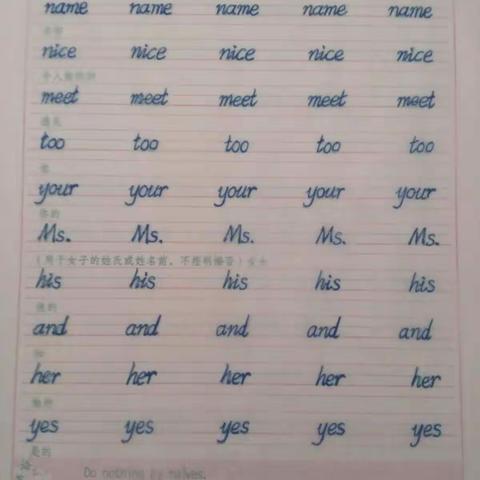 name name name name name
nice nice nice nice nice
令人愉快的
meet meet meet meet meet
遇见
too too too too too
也
your your your your your
你的
Ms. Ms. Ms. Ms. Ms.
(用于女子的姓氏或姓名前，不指明婚否) 女士
his his his his his
他的
and and and and and
和
her her her her her
她的
yes yes yes yes yes
是的
Do nothing by halves.